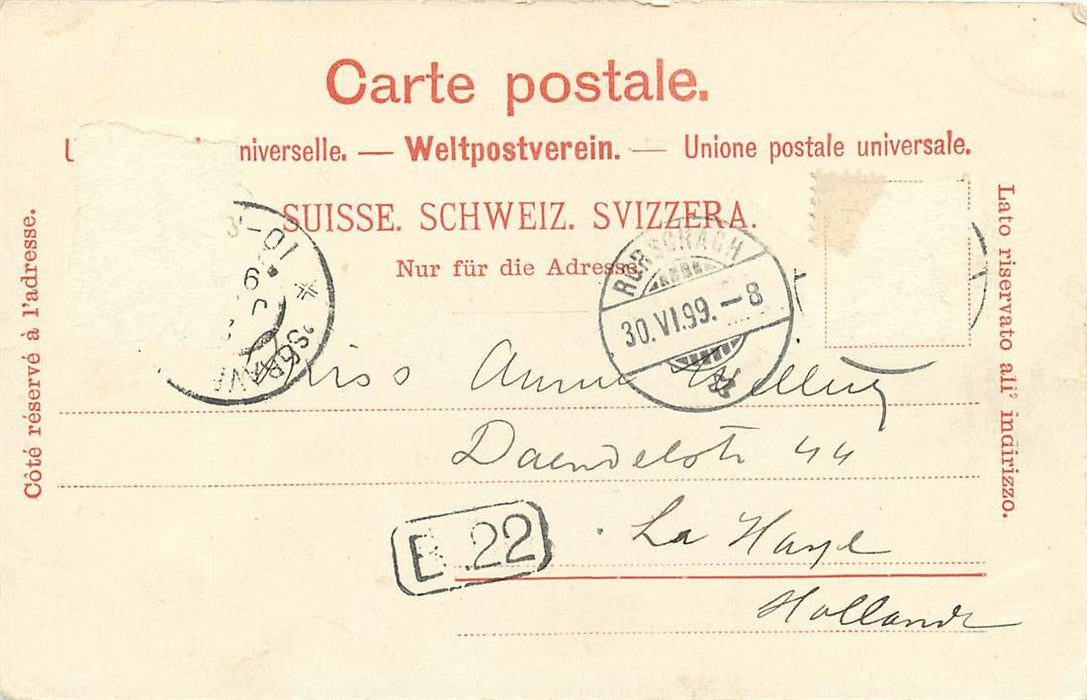 Carte postale.
niverselle. — Weltpostverein. — Unione postale universale.
SUISSE. SCHWEIZ. SVIZZERA.
Nur für die Adresse.
Côté réservé à l'adresse.
Lato riservato all' indirizzo.
RORSCHACH
30.VI.99.–8
Miss Anna
Daendelstr 44
La Haye
Hollande
E 22